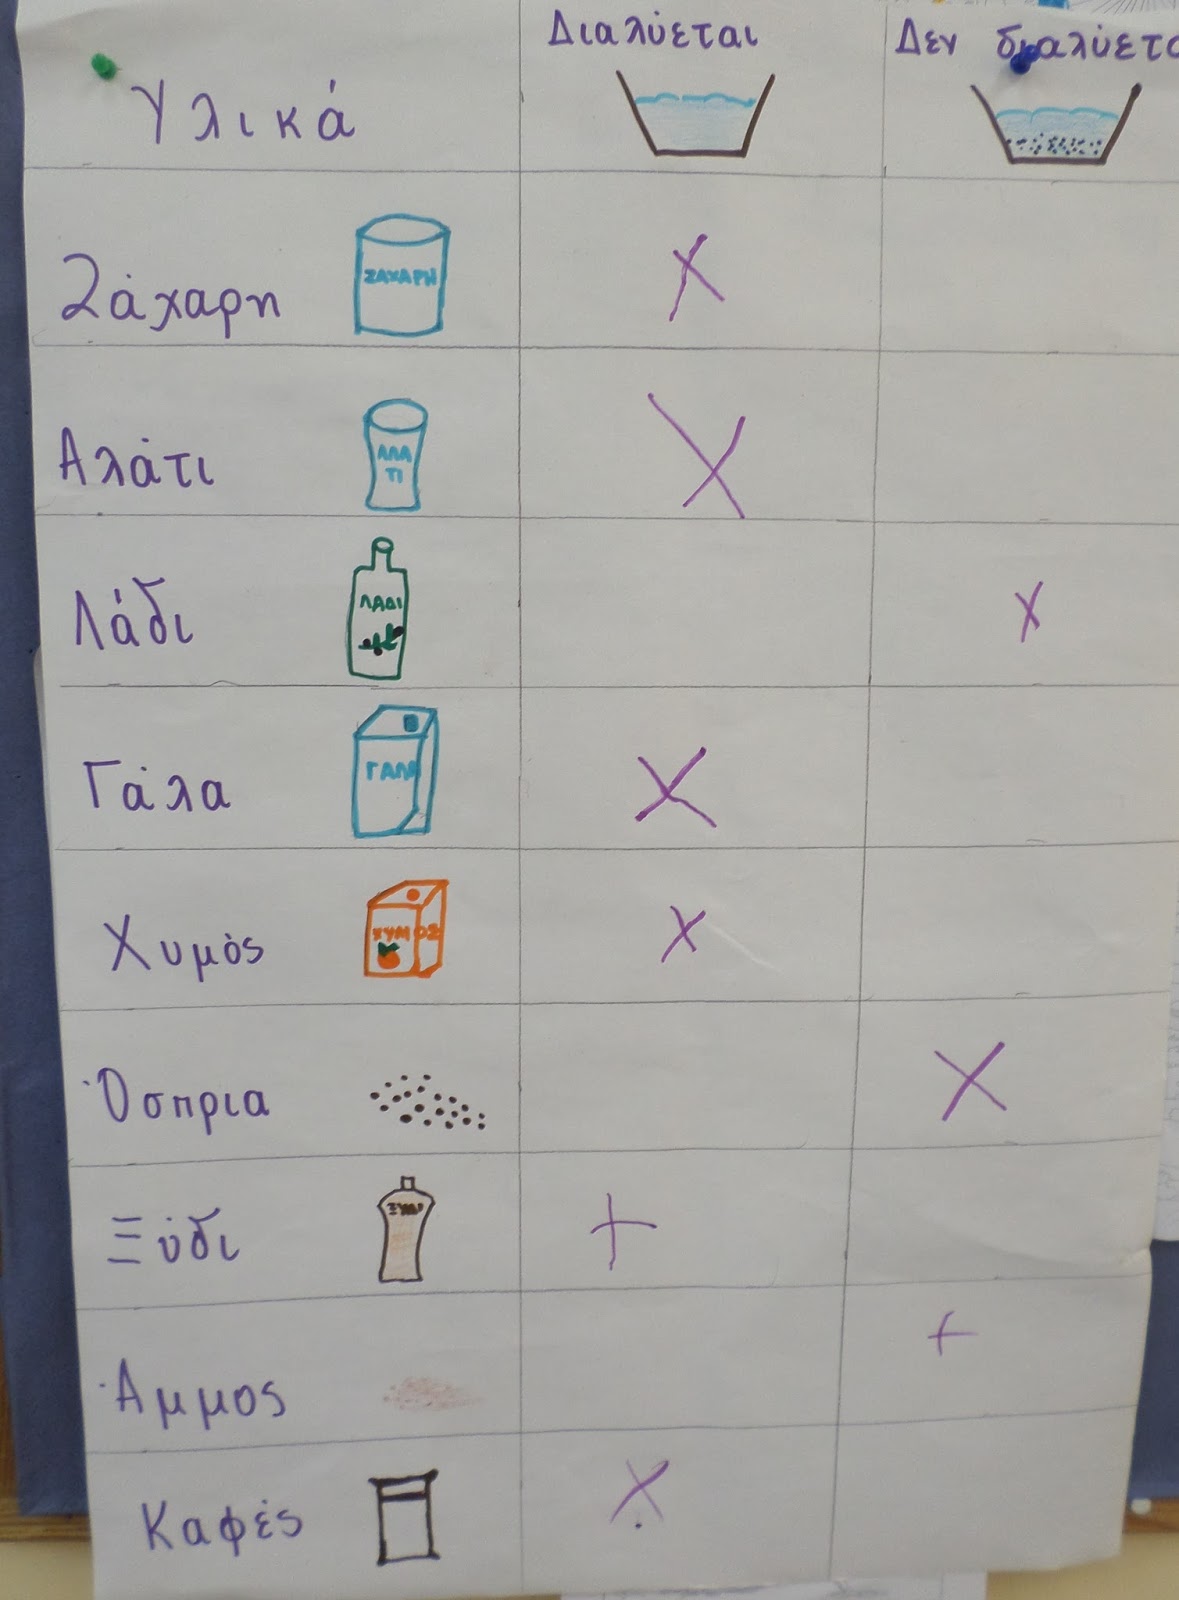 Υλικά Διαλύεται Δεν διαλύετα
Ζάχαρη ΖΑΧΑΡΗ
Αλάτι ΑΛΑ
ΤΙ
Λάδι ΛΑΔΙ
Γάλα ΓΑΛΑ
Χυμός ΧΥΜΟΣ
Όσπρια
Ξύδι ΞΥΔΙ
Άμμος
Καφές